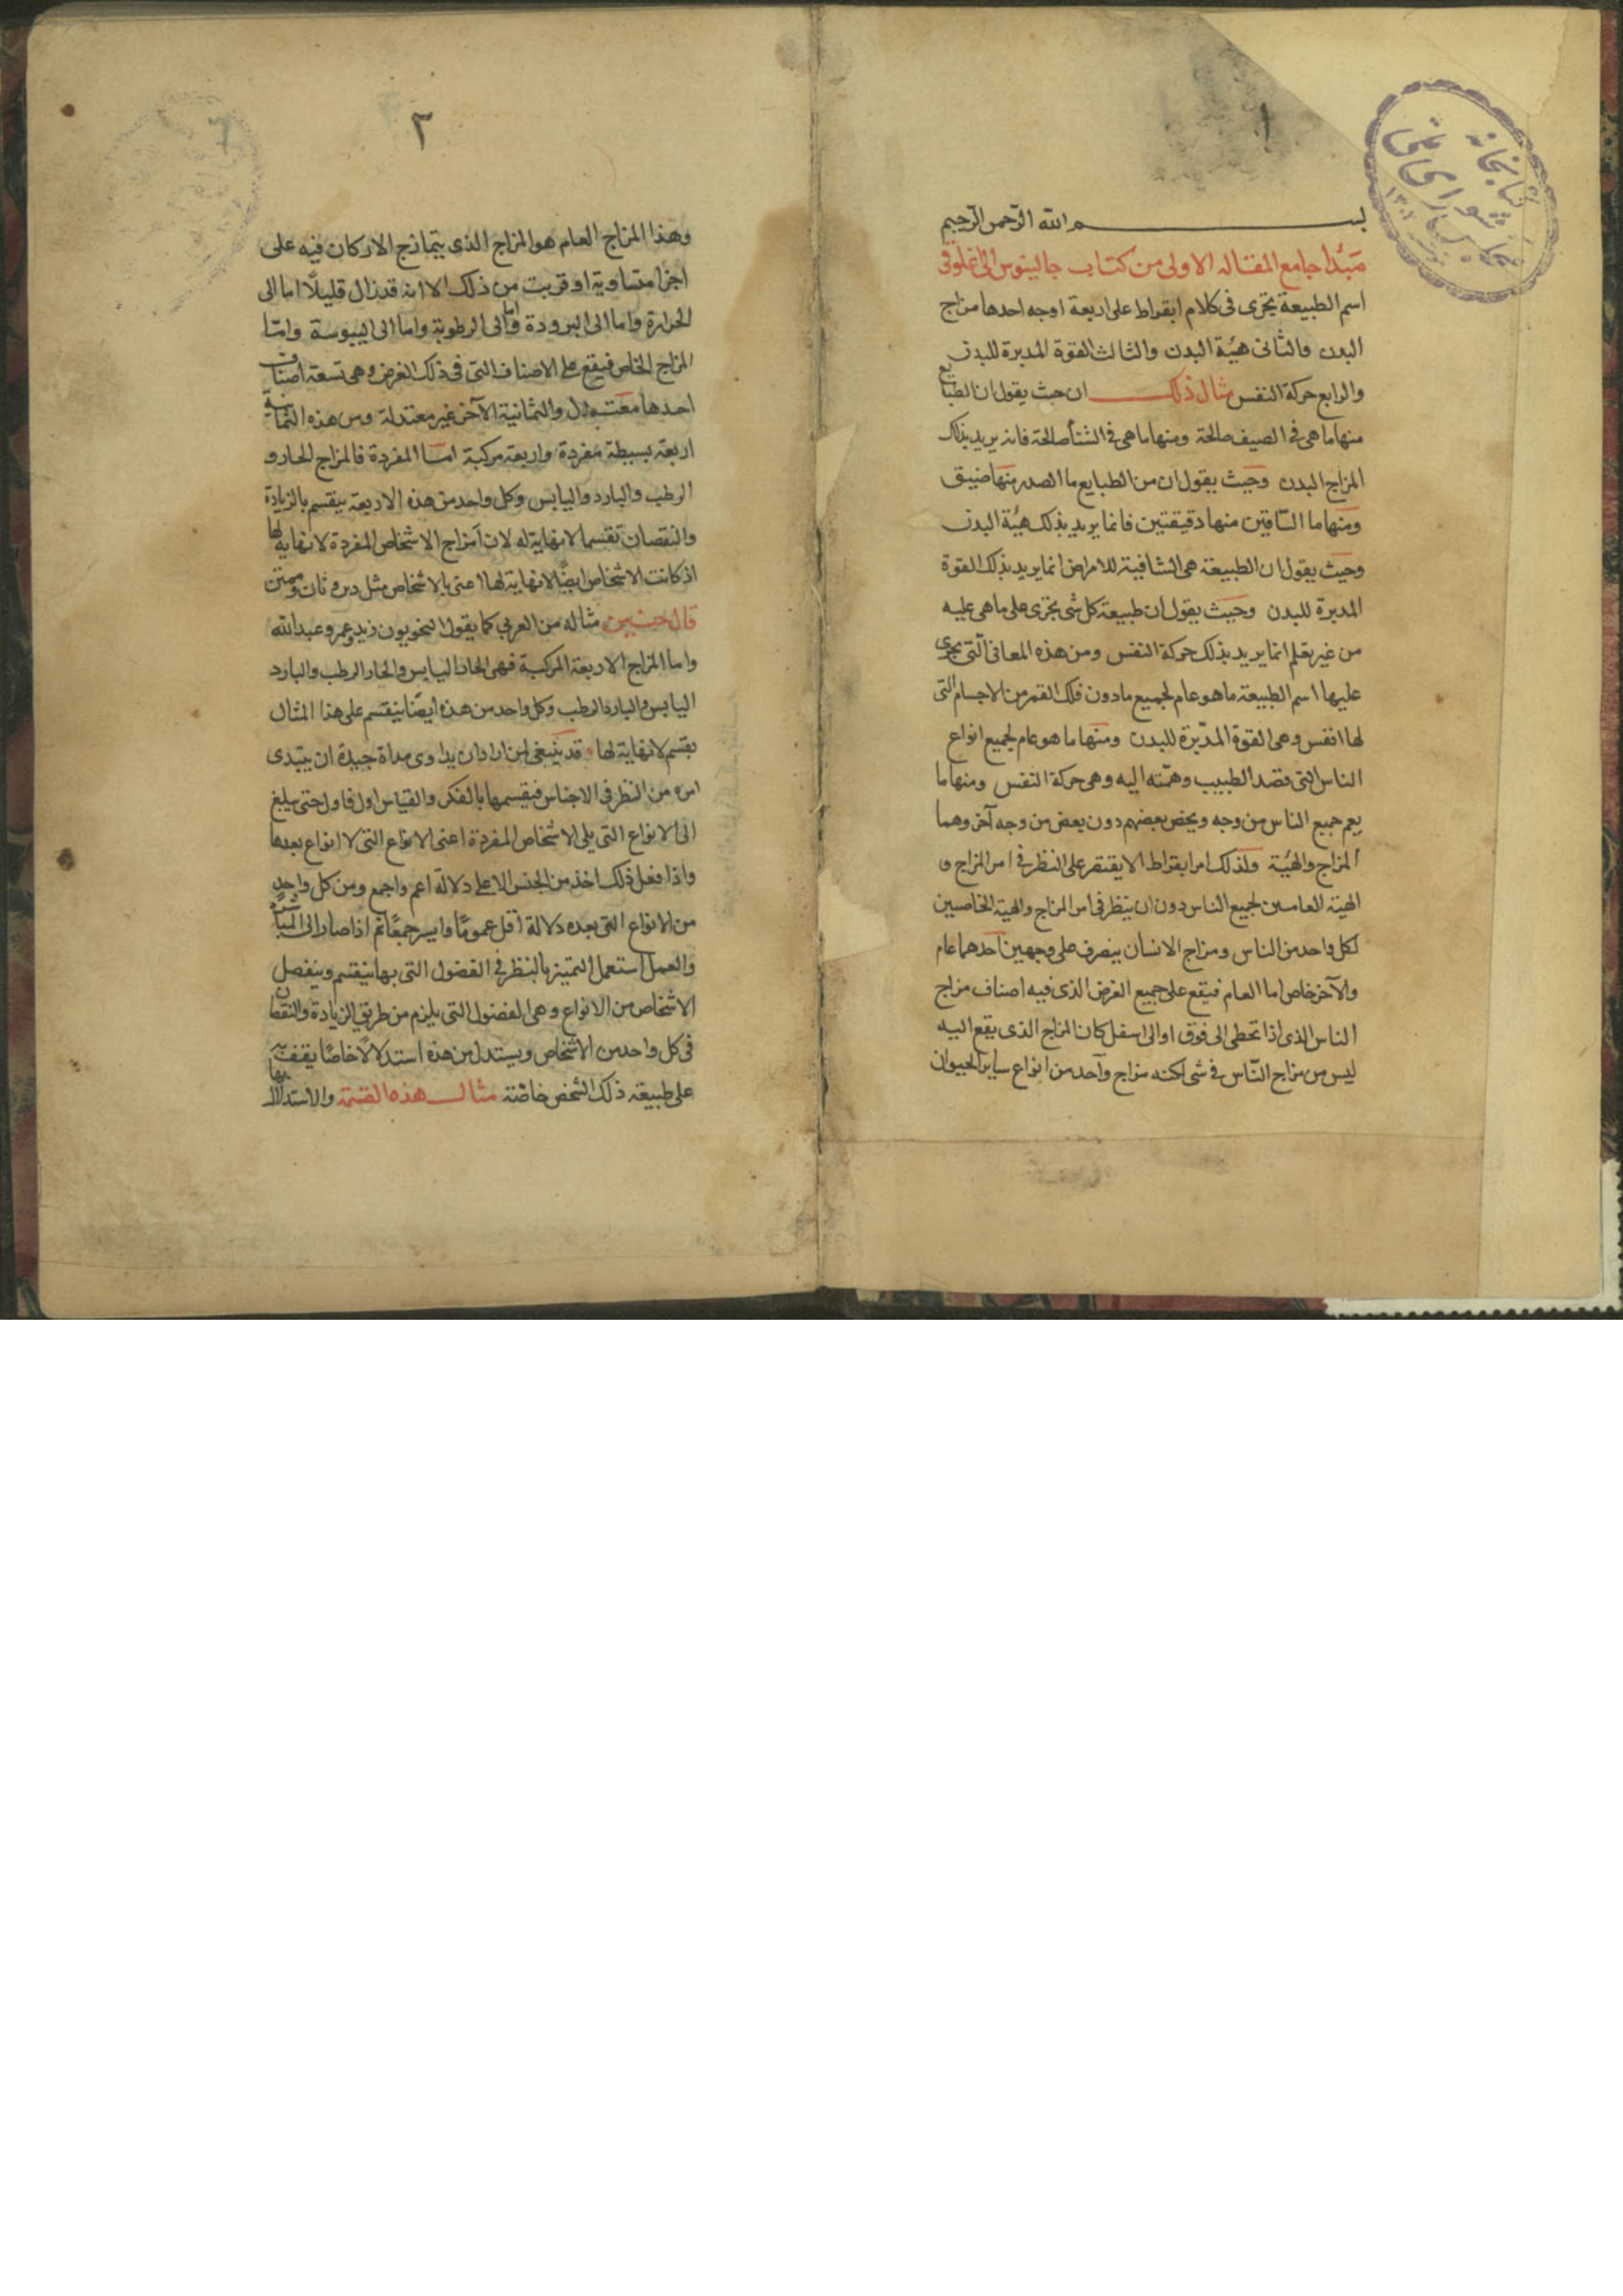 ١
بسم الله الرحمن الرحيم
مبدأ جامع المقاله الاولى من كتاب جالينوس الى اغلوقن
اسم الطبيعة يجرى فى كلام ابقراط على اربعة اوجه احدها مزاج
البدن والثانى هيئة البدن والثالث القوة المدبرة للبدن
والرابع حركة النفس مثال ذلك ان حيث يقول ان الطبايع
منها ما هى فى الصيف صالحة ومنها ما هى فى الشتأ صالحة فانه يريد بذلك
المزاج البدن وحيث يقول ان من الطبايع ما الصدر منها ضيق
ومنها ما الساقين منها دقيقتين فانما يريد بذلك هيئة البدن
وحيث يقول ان الطبيعة هى الشافية للامراض انما يريد بذلك القوة
المدبرة للبدن وحيث يقول ان طبيعة كل شى يجرى على ما هى عليه
من غير تعلم انما يريد بذلك حركة النفس ومن هذه المعانى التى يجرى
عليها اسم الطبيعة ما هو عام لجميع ما دون فلك القمر من الاجسام التى
لها انفس وهى القوة المدبرة للبدن ومنها ما هو عام لجميع انواع
الناس التى قصد الطبيب وهمته اليه وهى حركة النفس ومنها ما
يعم جميع الناس من وجه ويخص بعضهم دون بعض من وجه آخر وهما
المزاج والهيئة ولذلك امر ابقراط الا يقتصر على النظر فى امر المزاج و
الهيئة العامين لجميع الناس دون ان ينظر فى امر المزاج والهيئة الخاصيين
لكل واحد من الناس ومزاج الانسان ينصرف على وجهين احدهما عام
والآخر خاص اما العام فيقع على جميع العرض الذى فيه اصناف مزاج
الناس الذى اذا تخطى الى فوق او الى اسفل كان المزاج الذى يقع اليه
ليس من مزاج الناس فى شى لكنه مزاج واحد من انواع ساير الحيوان
٢
وهذا المزاج العام هو المزاج الذى يتمازج الاركان فيه على
اجزا متساوية او قريبت من ذلك الا انه قد زال قليلًا اما الى
الحرارة واما الى البرودة واما الى الرطوبة واما الى اليبوسة واما
المزاج الخاص فيقع على الاصناف التى فى ذلك العرض وهى تسعة اصناف
احدها معتدل والثمانية الآخر غير معتدلة ومن هذه الثمانية
اربعة بسيطة مفردة واربعة مركبة اما المفردة فالمزاج الحار و
الرطب والبارد واليابس وكل واحد من هذه الاربعة ينقسم بالزيادة
والنقصان تقسما لا نهاية له لان امزاج الاشخاص المفردة لا نهاية لها
اذ كانت الاشخاص ايضًا لا نهاية لها اعنى بالاشخاص مثل ديو وثان وممنن
قال حنين مثاله من العربي كما يقول النحويون زيد وعمرو عبد الله
واما المزاج الاربعة المركبة فهى الحار اليابس والحار الرطب والبارد
اليابس والبارد الرطب وكل واحد من هذه ايضًا ينقسم على هذا المثال
بقسم لا نهاية لها قد ينبغى لمن اراد ان يداوى مداواة جيدة ان يبتدى
امره من النظر فى الاجناس فيقسمها بالفكر والقياس اول فاول حتى يبلغ
الى الانواع التى يلى الاشخاص المفردة اعنى الانواع التى لا انواع بعدها
واذا فعل ذلك اخذ من الجنس الاعلى دلالة اعم واجمع ومن كل واحد
من الانواع التى بعده دلالة اقل عمومًا وايسر جمعًا ثم اذا صار الى المباشرة
والعمل استعمل التميز بالنظر فى الفصول التى بها ينقسم وينفصل
الاشخاص من الانواع وهى الفصول التى يلزم من طريق الزيادة والنقصان
فى كل واحد من الاشخاص ويستدل من هذه استدلالًا خاصًا يقف به
على طبيعة ذلك الشخص خاصة مثال هذه القسمة والاستدلال بها